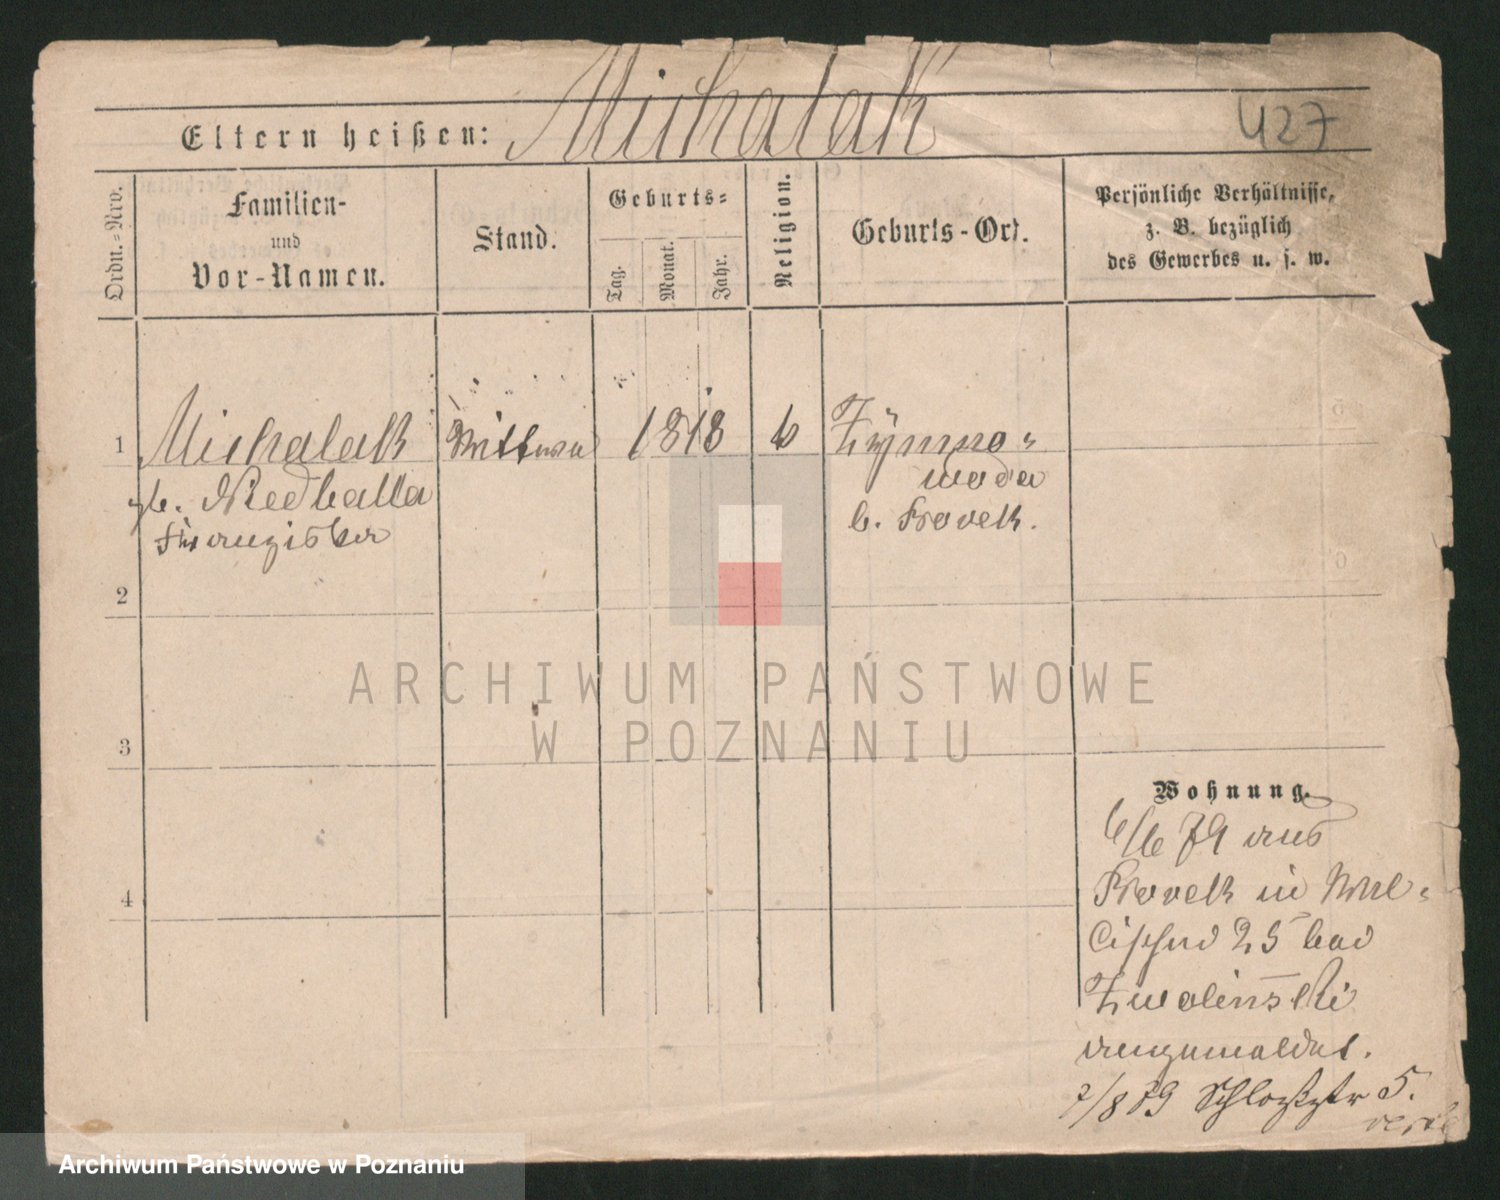 Eltern heißen: Michalak
427
Ordn.=Nro.
Familien-
und
Vor-Namen.
Stand.
Geburts=
Tag.
Monat.
Jahr.
Religion.
Geburts-Ort.
Persönliche Verhältnisse,
z. B. bezüglich
des Gewerbes u. s. w.
1
Michalak
gb. Niedballa
Franziska
Wittwe
1818
k
Zÿmno=
woda
b. Kroeben.
2
3
4
Wohnung.
6/6 79 aus
in Wal=
lischei 25 bei
Zwolinski
angemeldet.
7/8 89 Schloßstr 5.
ARCHIWUM PAŃSTWOWE
W POZNANIU
Archiwum Państwowe w Poznaniu